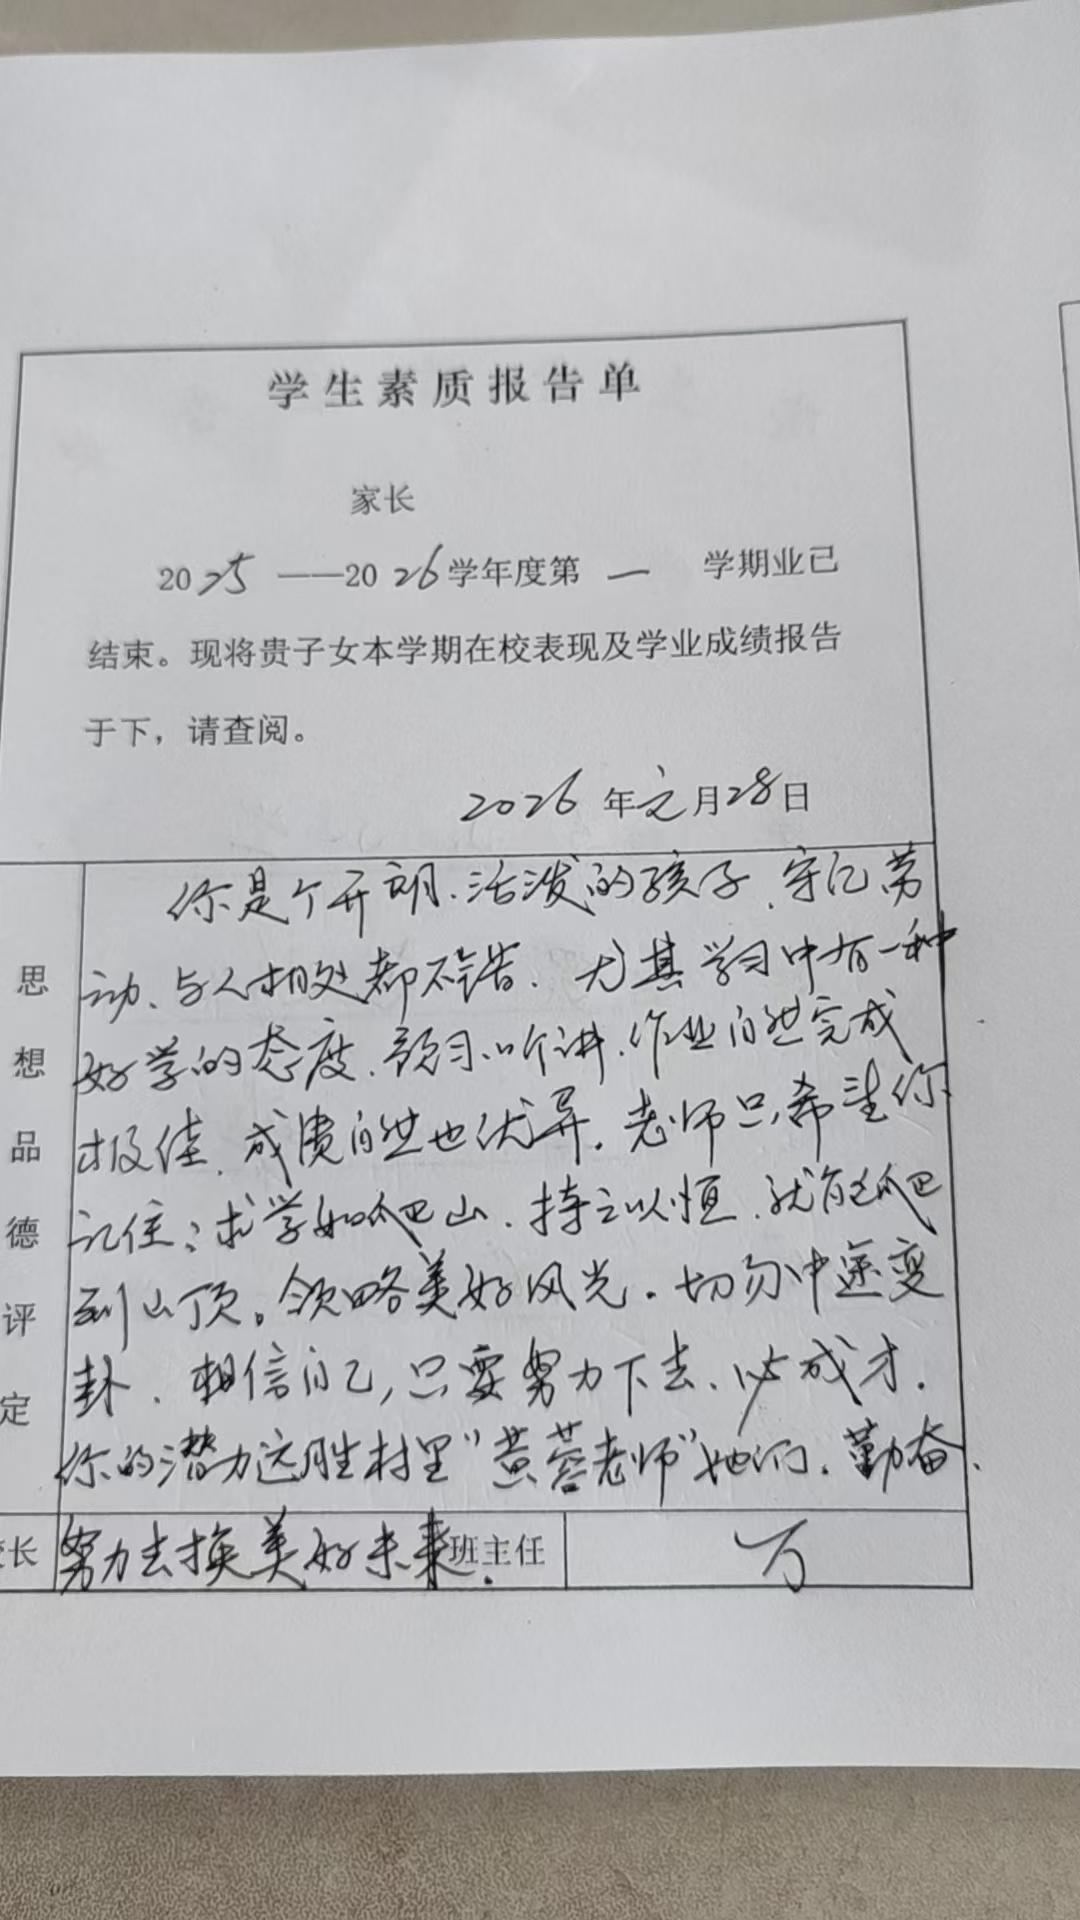 学生素质报告单
家长
2025——2026学年度第一学期业已
结束。现将贵子女本学期在校表现及学业成绩报告
于下，请查阅。
2026年元月28日
思想品德评定
你是个开朗、活泼的孩子，守纪劳
动、与人相处都不错。尤其学习中有一种
好学的态度，预习、听讲、作业自然完成
极佳，成绩自然也优异。老师只希望你
记住：求学如爬山，持之以恒，就能爬
到山顶。领略美好风光。切勿中途变
卦，相信自己，只要努力下去，必成才。
你的潜力远胜村里“黄蓉老师”她们。勤奋、
长 努力去换美好未来。 班主任 万